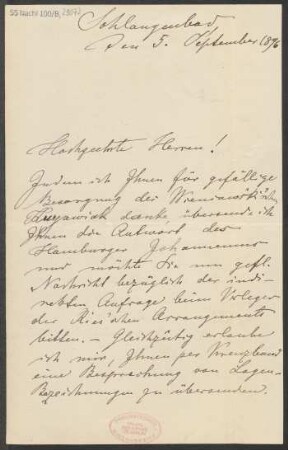 SS Nachl 100/B, 29872
Schlangenbad
den 5. September 1896
Hochgeehrte Herren!
Indem ich Ihnen für gefällige
Besorgung des Wieniawski'schen
Kuyawiak danke, übersende ich
Ihnen die Antwort des
Hamburger Johanneums
und möchte Sie um gefl.
Nachricht bezüglich der indi-
rekten Anfrage beim Verleger
der Ries'schen Arrangements
bitten. – Gleichzeitig erlaube
ich mir, Ihnen per Kreuzband
eine Besprechung von Lagen-
Bezeichnungen zu übersenden.